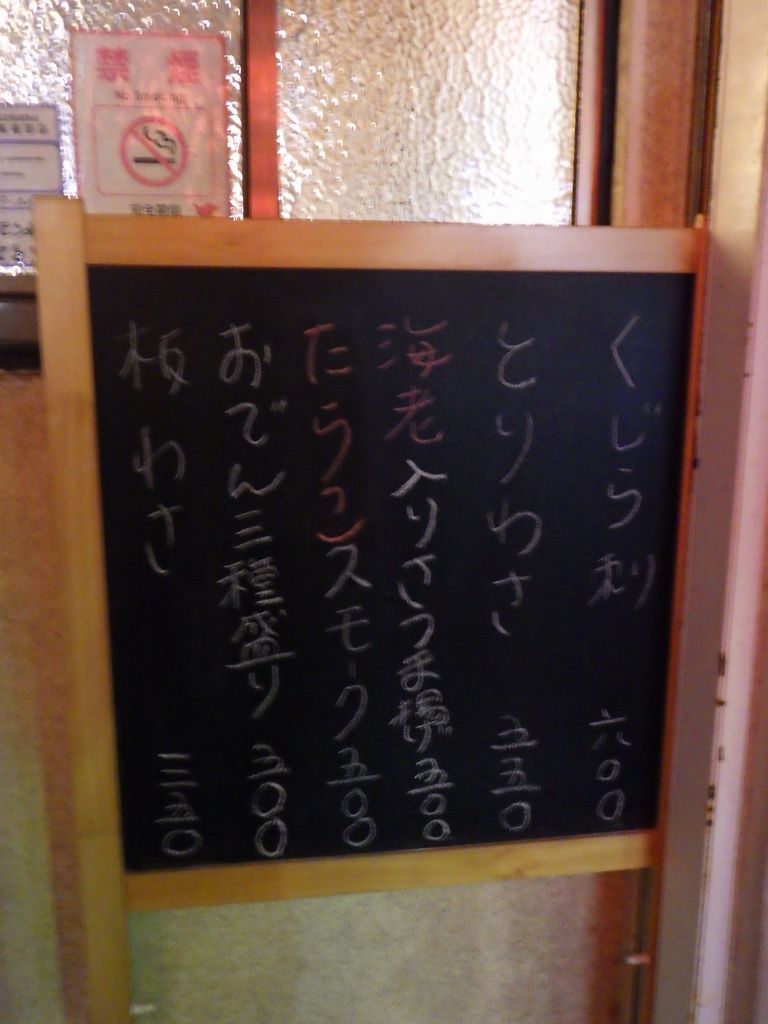 禁煙
No Smoking
くじら刺 六〇〇
とりわさ 五五〇
海老入りさつま揚げ 五〇〇
たらこスモーク 五〇〇
おでん三種盛り 五〇〇
板わさ 三五〇